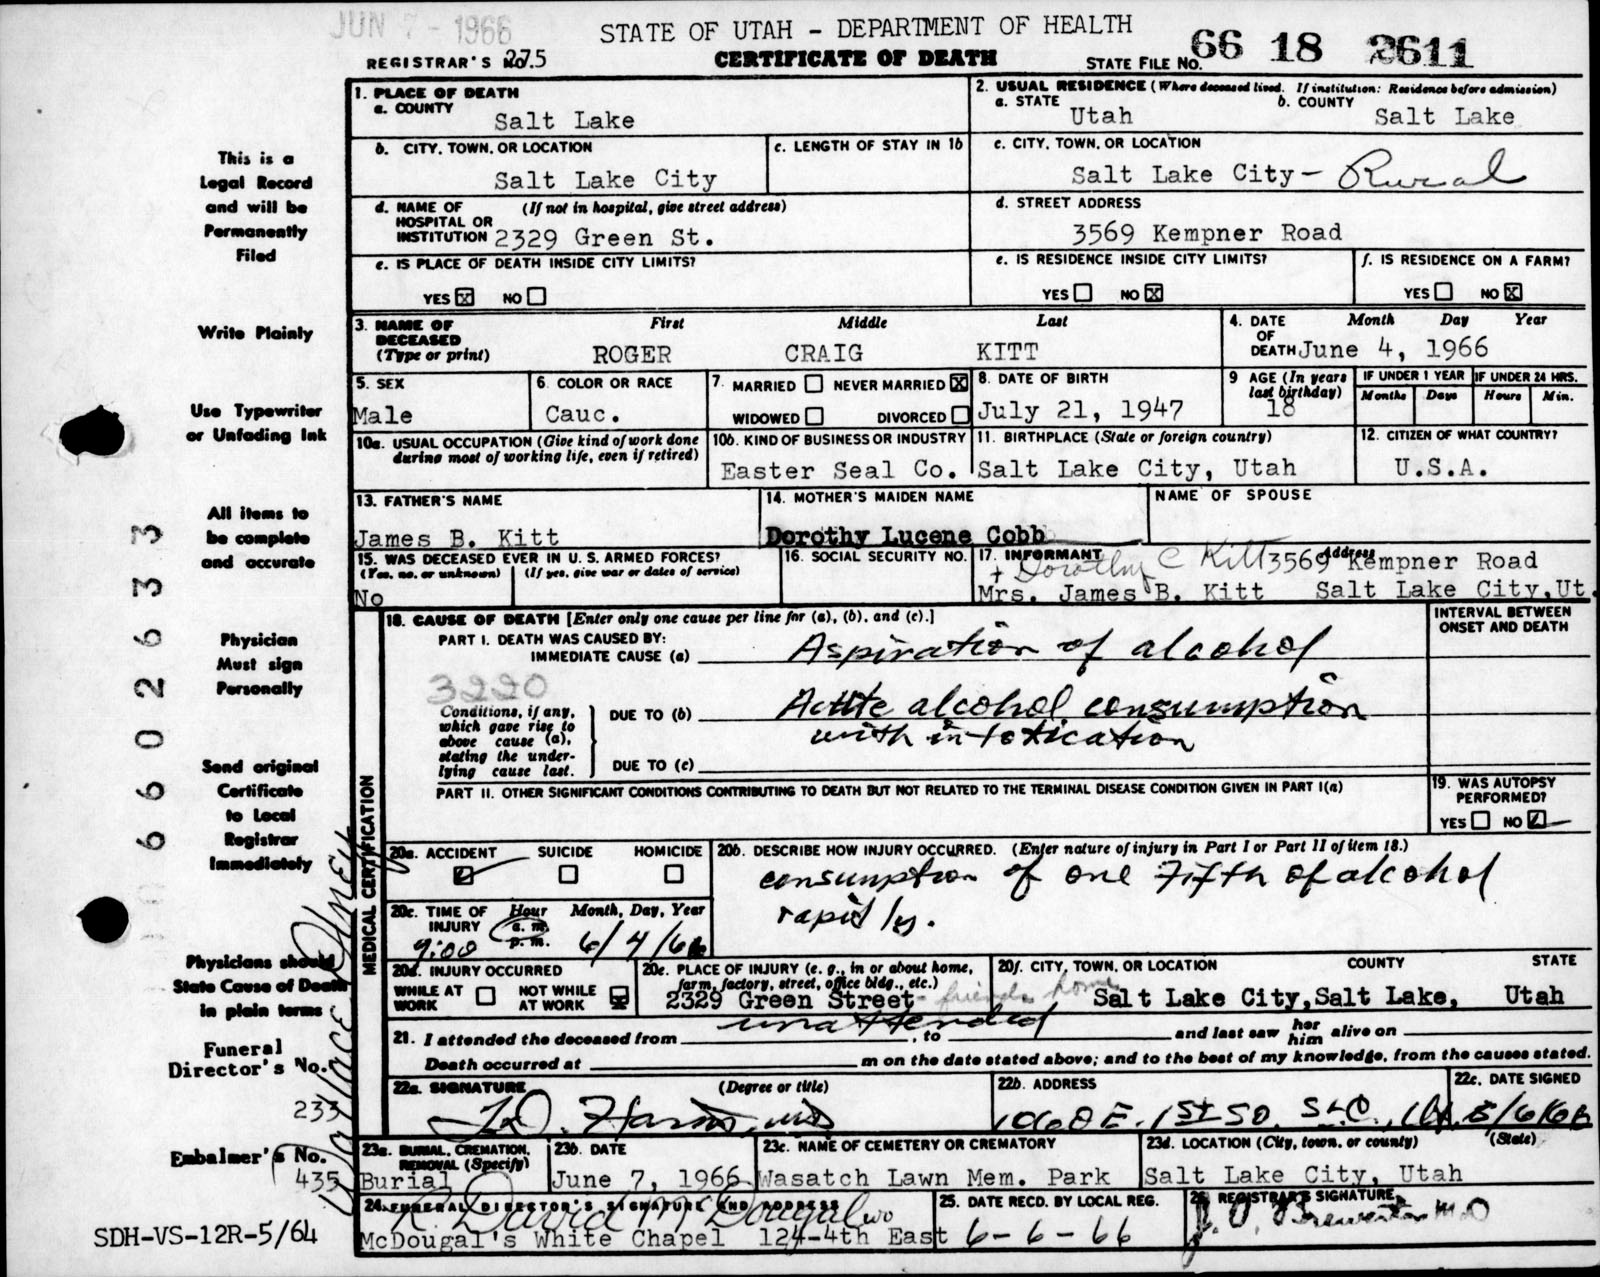 JUN 7 - 1966
STATE OF UTAH - DEPARTMENT OF HEALTH
REGISTRAR'S NO. 275
CERTIFICATE OF DEATH
STATE FILE NO. 66 18 2611
1. PLACE OF DEATH
a. COUNTY
Salt Lake
2. USUAL RESIDENCE (Where deceased lived. If institution: Residence before admission)
a. STATE
Utah
b. COUNTY
Salt Lake
b. CITY, TOWN, OR LOCATION
Salt Lake City
c. LENGTH OF STAY IN 1b
c. CITY, TOWN, OR LOCATION
Salt Lake City - Rural
d. NAME OF HOSPITAL OR INSTITUTION (If not in hospital, give street address)
2329 Green St.
d. STREET ADDRESS
3569 Kempner Road
e. IS PLACE OF DEATH INSIDE CITY LIMITS?
YES X NO
e. IS RESIDENCE INSIDE CITY LIMITS?
YES NO X
f. IS RESIDENCE ON A FARM?
YES NO X
3. NAME OF DECEASED (Type or print)
First Middle Last
ROGER CRAIG KITT
4. DATE OF DEATH
Month Day Year
June 4, 1966
5. SEX
Male
6. COLOR OR RACE
Cauc.
7. MARRIED NEVER MARRIED X
WIDOWED DIVORCED
8. DATE OF BIRTH
July 21, 1947
9 AGE (In years last birthday)
18
IF UNDER 1 YEAR
Months Days
IF UNDER 24 HRS.
Hours Min.
10a. USUAL OCCUPATION (Give kind of work done during most of working life, even if retired)
10b. KIND OF BUSINESS OR INDUSTRY
Easter Seal Co.
11. BIRTHPLACE (State or foreign country)
Salt Lake City, Utah
12. CITIZEN OF WHAT COUNTRY?
U.S.A.
13. FATHER'S NAME
James B. Kitt
14. MOTHER'S MAIDEN NAME
Dorothy Lucene Cobb
NAME OF SPOUSE
15. WAS DECEASED EVER IN U. S. ARMED FORCES?
(Yes, no, or unknown) (If yes, give war or dates of service)
No
16. SOCIAL SECURITY NO.
17. INFORMANT Address
+ Dorothy C Kitt 3569 Kempner Road
Mrs. James B. Kitt Salt Lake City, Ut.
MEDICAL CERTIFICATION
18. CAUSE OF DEATH [Enter only one cause per line for (a), (b), and (c).]
INTERVAL BETWEEN ONSET AND DEATH
PART I. DEATH WAS CAUSED BY:
IMMEDIATE CAUSE (a) Aspiration of alcohol
3220
Conditions, if any, which gave rise to above cause (a), stating the underlying cause last.
DUE TO (b) Acute alcohol consumption
with intoxication
DUE TO (c)
PART II. OTHER SIGNIFICANT CONDITIONS CONTRIBUTING TO DEATH BUT NOT RELATED TO THE TERMINAL DISEASE CONDITION GIVEN IN PART I(a)
19. WAS AUTOPSY PERFORMED?
YES NO
20a. ACCIDENT SUICIDE HOMICIDE
20b. DESCRIBE HOW INJURY OCCURRED. (Enter nature of injury in Part I or Part II of item 18.)
consumption of one Fifth of alcohol
rapidly.
20c. TIME OF INJURY
Hour Month, Day, Year
a. m.
p. m.
9:00 6/4/66
20d. INJURY OCCURRED
WHILE AT WORK NOT WHILE AT WORK
20e. PLACE OF INJURY (e. g., in or about home, farm, factory, street, office bldg., etc.)
2329 Green Street - friends home
20f. CITY, TOWN, OR LOCATION COUNTY STATE
Salt Lake City, Salt Lake, Utah
21. I attended the deceased from unattended, to and last saw her him alive on
Death occurred at m on the date stated above; and to the best of my knowledge, from the causes stated.
22a. SIGNATURE (Degree or title)
22b. ADDRESS
1060 E. 1st SO. SLC, Ut.
22c. DATE SIGNED
23a. BURIAL, CREMATION, REMOVAL (Specify)
Burial
23b. DATE
June 7, 1966
23c. NAME OF CEMETERY OR CREMATORY
Wasatch Lawn Mem. Park
23d. LOCATION (City, town, or county) (State)
Salt Lake City, Utah
24. FUNERAL DIRECTOR'S SIGNATURE AND ADDRESS
R. David McDougal
McDougal's White Chapel 124-4th East
25. DATE RECD. BY LOCAL REG.
6-6-66
26. REGISTRAR'S SIGNATURE
This is a
Legal Record
and will be
Permanently
Filed
Write Plainly
Use Typewriter
or Unfading Ink
All items to
be complete
and accurate
Physician
Must sign
Personally
Send original
Certificate
to Local
Registrar
Immediately
Physicians should
State Cause of Death
in plain terms
Funeral
Director's No.
233
Embalmer's No.
435
660 2633
SDH-VS-12R-5/64